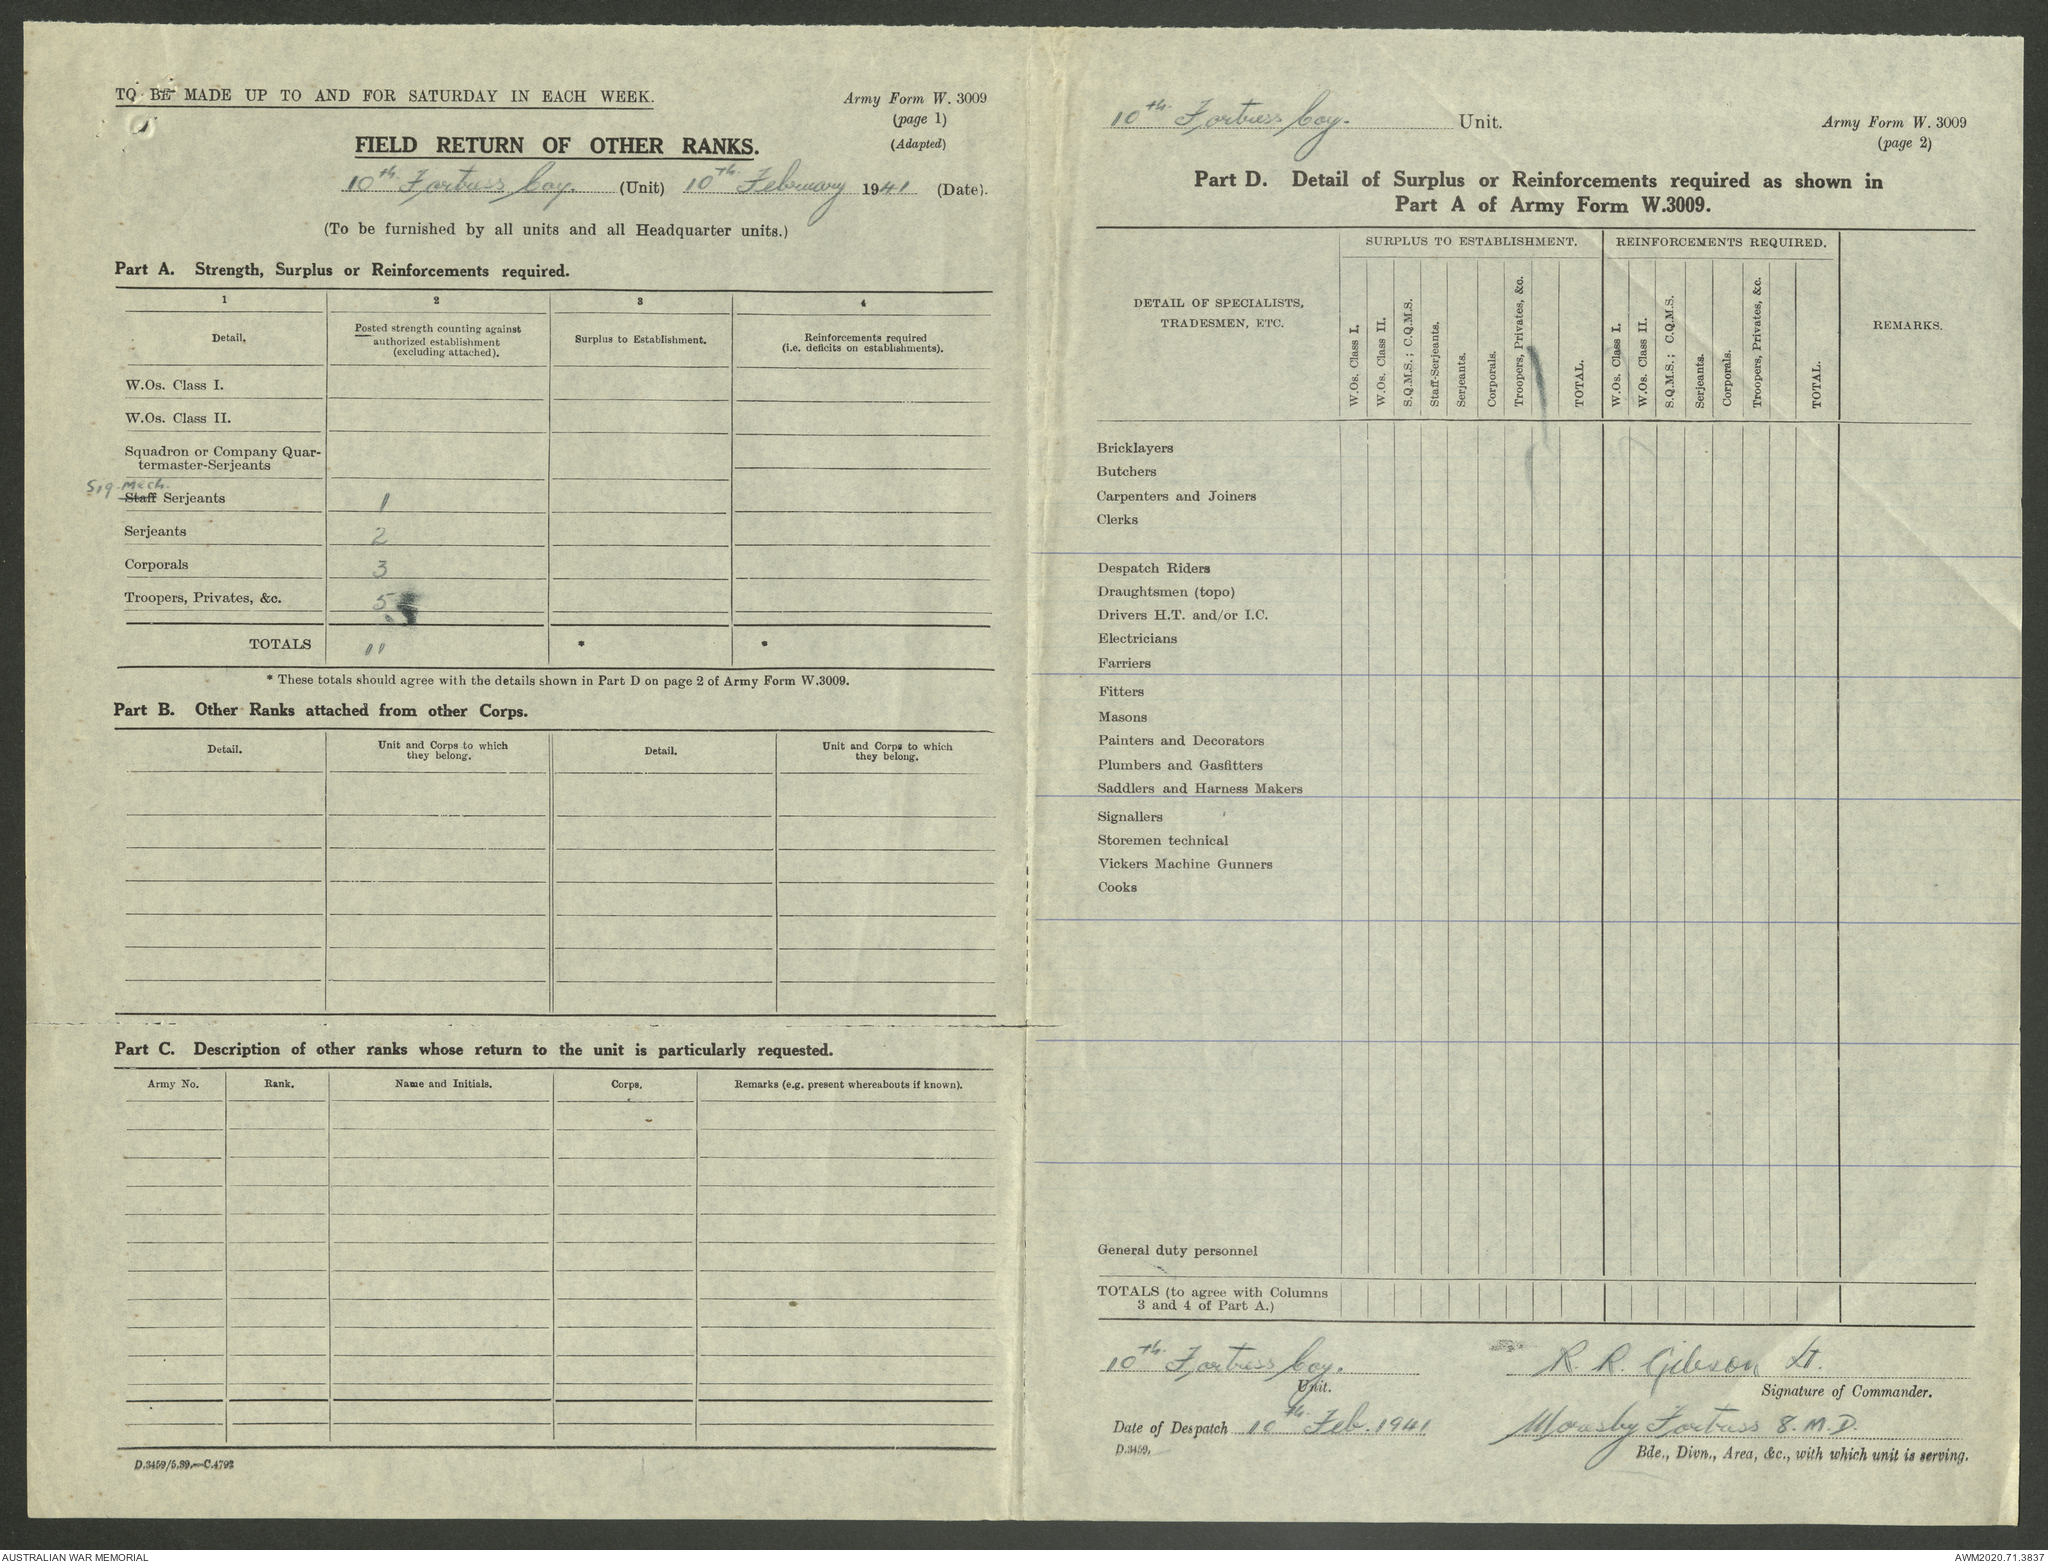 TO BE MADE UP TO AND FOR SATURDAY IN EACH WEEK.
Army Form W. 3009
(page 1)
(Adapted)
FIELD RETURN OF OTHER RANKS.
10th Fortress Coy. (Unit) 10th February 1941 (Date).
(To be furnished by all units and all Headquarter units.)
Part A. Strength, Surplus or Reinforcements required.
1 2 3 4
Detail.
Posted strength counting against
authorized establishment
(excluding attached).
Surplus to Establishment.
Reinforcements required
(i.e. deficits on establishments).
W.Os. Class I.
W.Os. Class II.
Squadron or Company Quar-
termaster-Serjeants
Sig. Mech.
Staff Serjeants 1
Serjeants 2
Corporals 3
Troopers, Privates, &c. 5
TOTALS 11 * *
* These totals should agree with the details shown in Part D on page 2 of Army Form W.3009.
Part B. Other Ranks attached from other Corps.
Detail.
Unit and Corps to which
they belong.
Detail.
Unit and Corps to which
they belong.
Part C. Description of other ranks whose return to the unit is particularly requested.
Army No. Rank. Name and Initials. Corps. Remarks (e.g. present whereabouts if known).
D.3459/5.39.—C.4792
10th Fortress Coy. Unit.
Army Form W. 3009
(page 2)
Part D. Detail of Surplus or Reinforcements required as shown in
Part A of Army Form W.3009.
DETAIL OF SPECIALISTS,
TRADESMEN, ETC.
SURPLUS TO ESTABLISHMENT.
W.Os. Class I.
W.Os. Class II.
S.Q.M.S.; C.Q.M.S.
Staff-Serjeants.
Serjeants.
Corporals.
Troopers, Privates, &c.
TOTAL.
REINFORCEMENTS REQUIRED.
W.Os. Class I.
W.Os. Class II.
S.Q.M.S.; C.Q.M.S.
Serjeants.
Corporals.
Troopers, Privates, &c.
TOTAL.
REMARKS.
Bricklayers
Butchers
Carpenters and Joiners
Clerks
Despatch Riders
Draughtsmen (topo)
Drivers H.T. and/or I.C.
Electricians
Farriers
Fitters
Masons
Painters and Decorators
Plumbers and Gasfitters
Saddlers and Harness Makers
Signallers
Storemen technical
Vickers Machine Gunners
Cooks
General duty personnel
TOTALS (to agree with Columns
3 and 4 of Part A.)
10th Fortress Coy.
Unit.
R. R. Gibson Lt.
Signature of Commander.
Date of Despatch 10th Feb. 1941
D.3459.
Moresby Fortress 8. M. D.
Bde., Divn., Area, &c., with which unit is serving.
AUSTRALIAN WAR MEMORIAL
AWM2020.71.3837